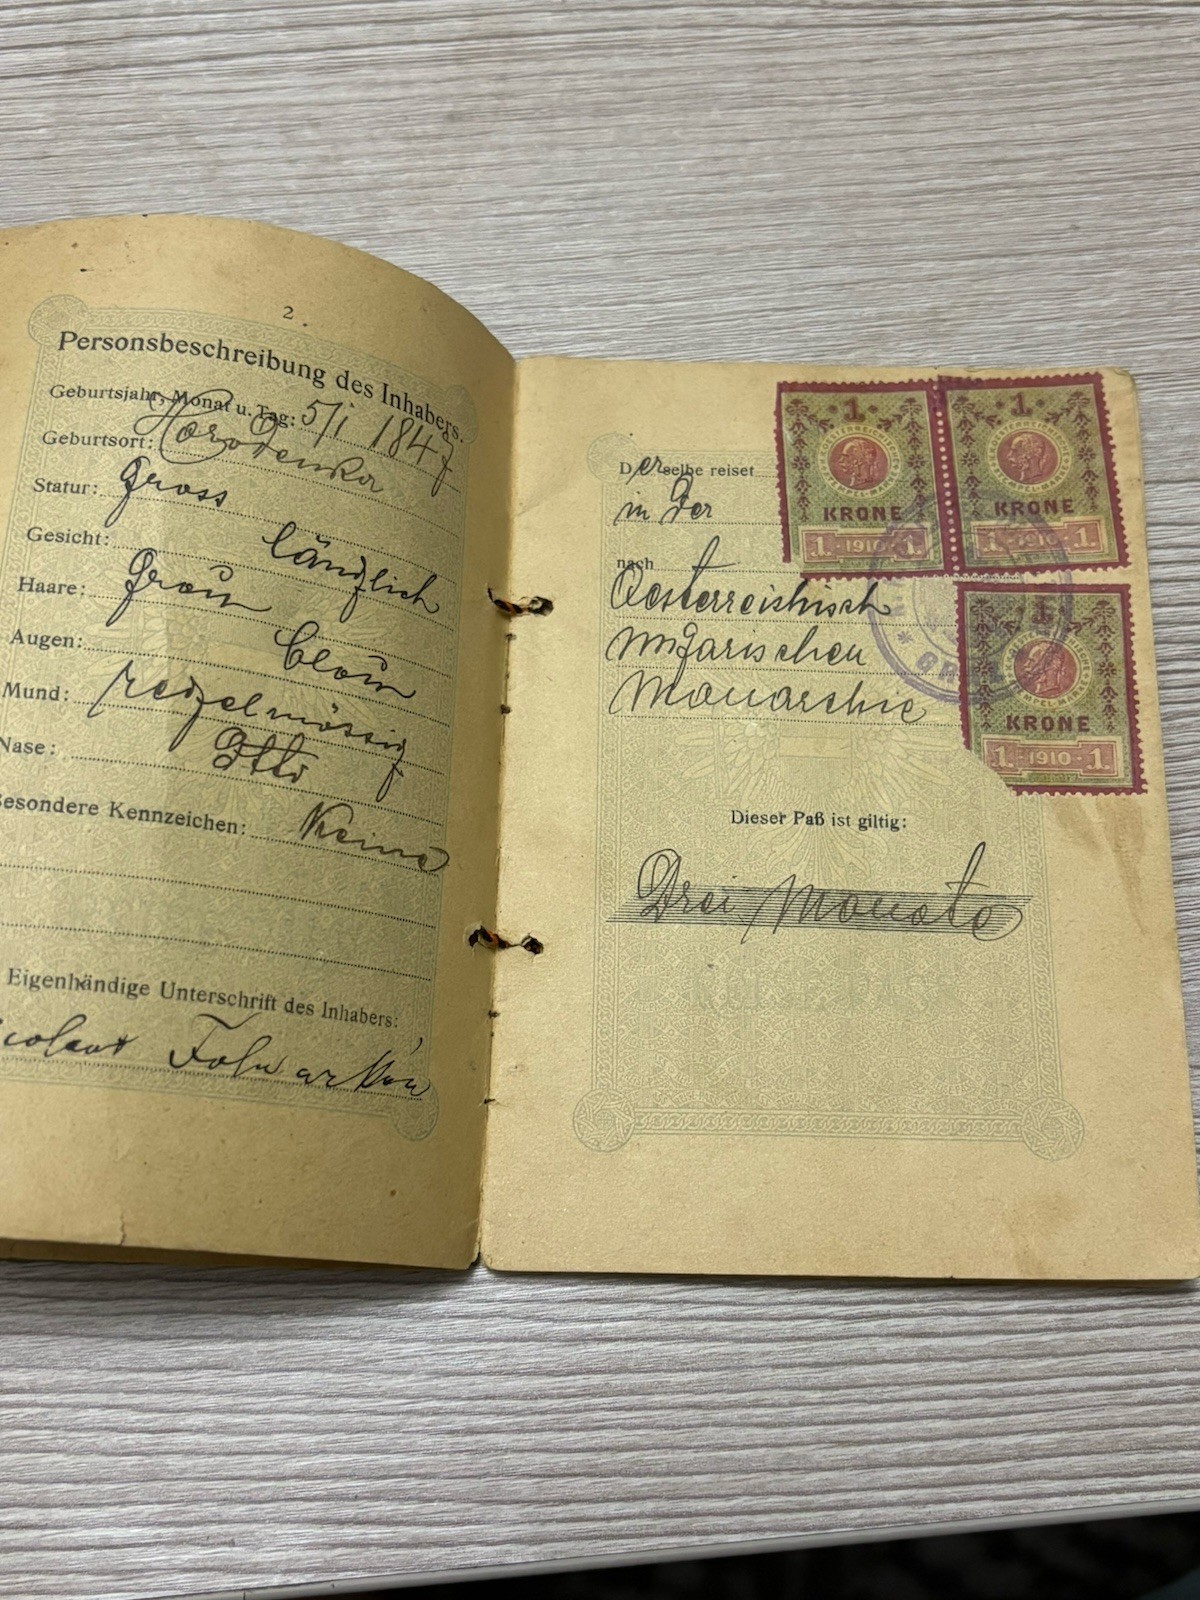 2.
Personsbeschreibung des Inhabers.
Geburtsjahr, Monat u. Tag: 5/1 1847
Geburtsort: Horodenka
Statur: gross
Gesicht: länglich
Haare: grau
Augen: blau
Mund: regelmässig
Nase: dtto
Besondere Kennzeichen: Keine
Eigenhändige Unterschrift des Inhabers:
Derselbe reiset
in der
nach
Oesterreichisch
ungarischen
Monarchie
Dieser Paß ist giltig:
Drei Monate
1
KRONE
1 1910 1
1
KRONE
1 1910 1
1
KRONE
1 1910 1